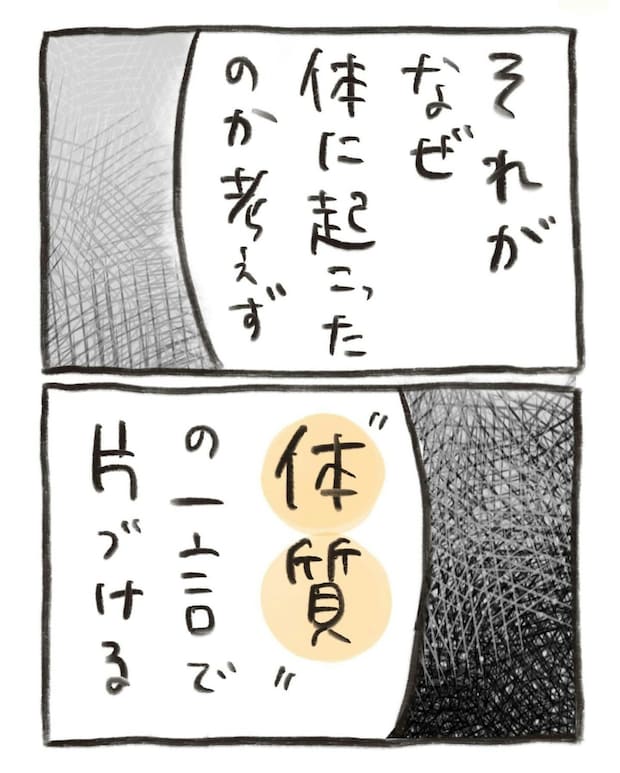 それが
なぜ
体に起こった
のか考えず
"体質"
の一言で
片づける